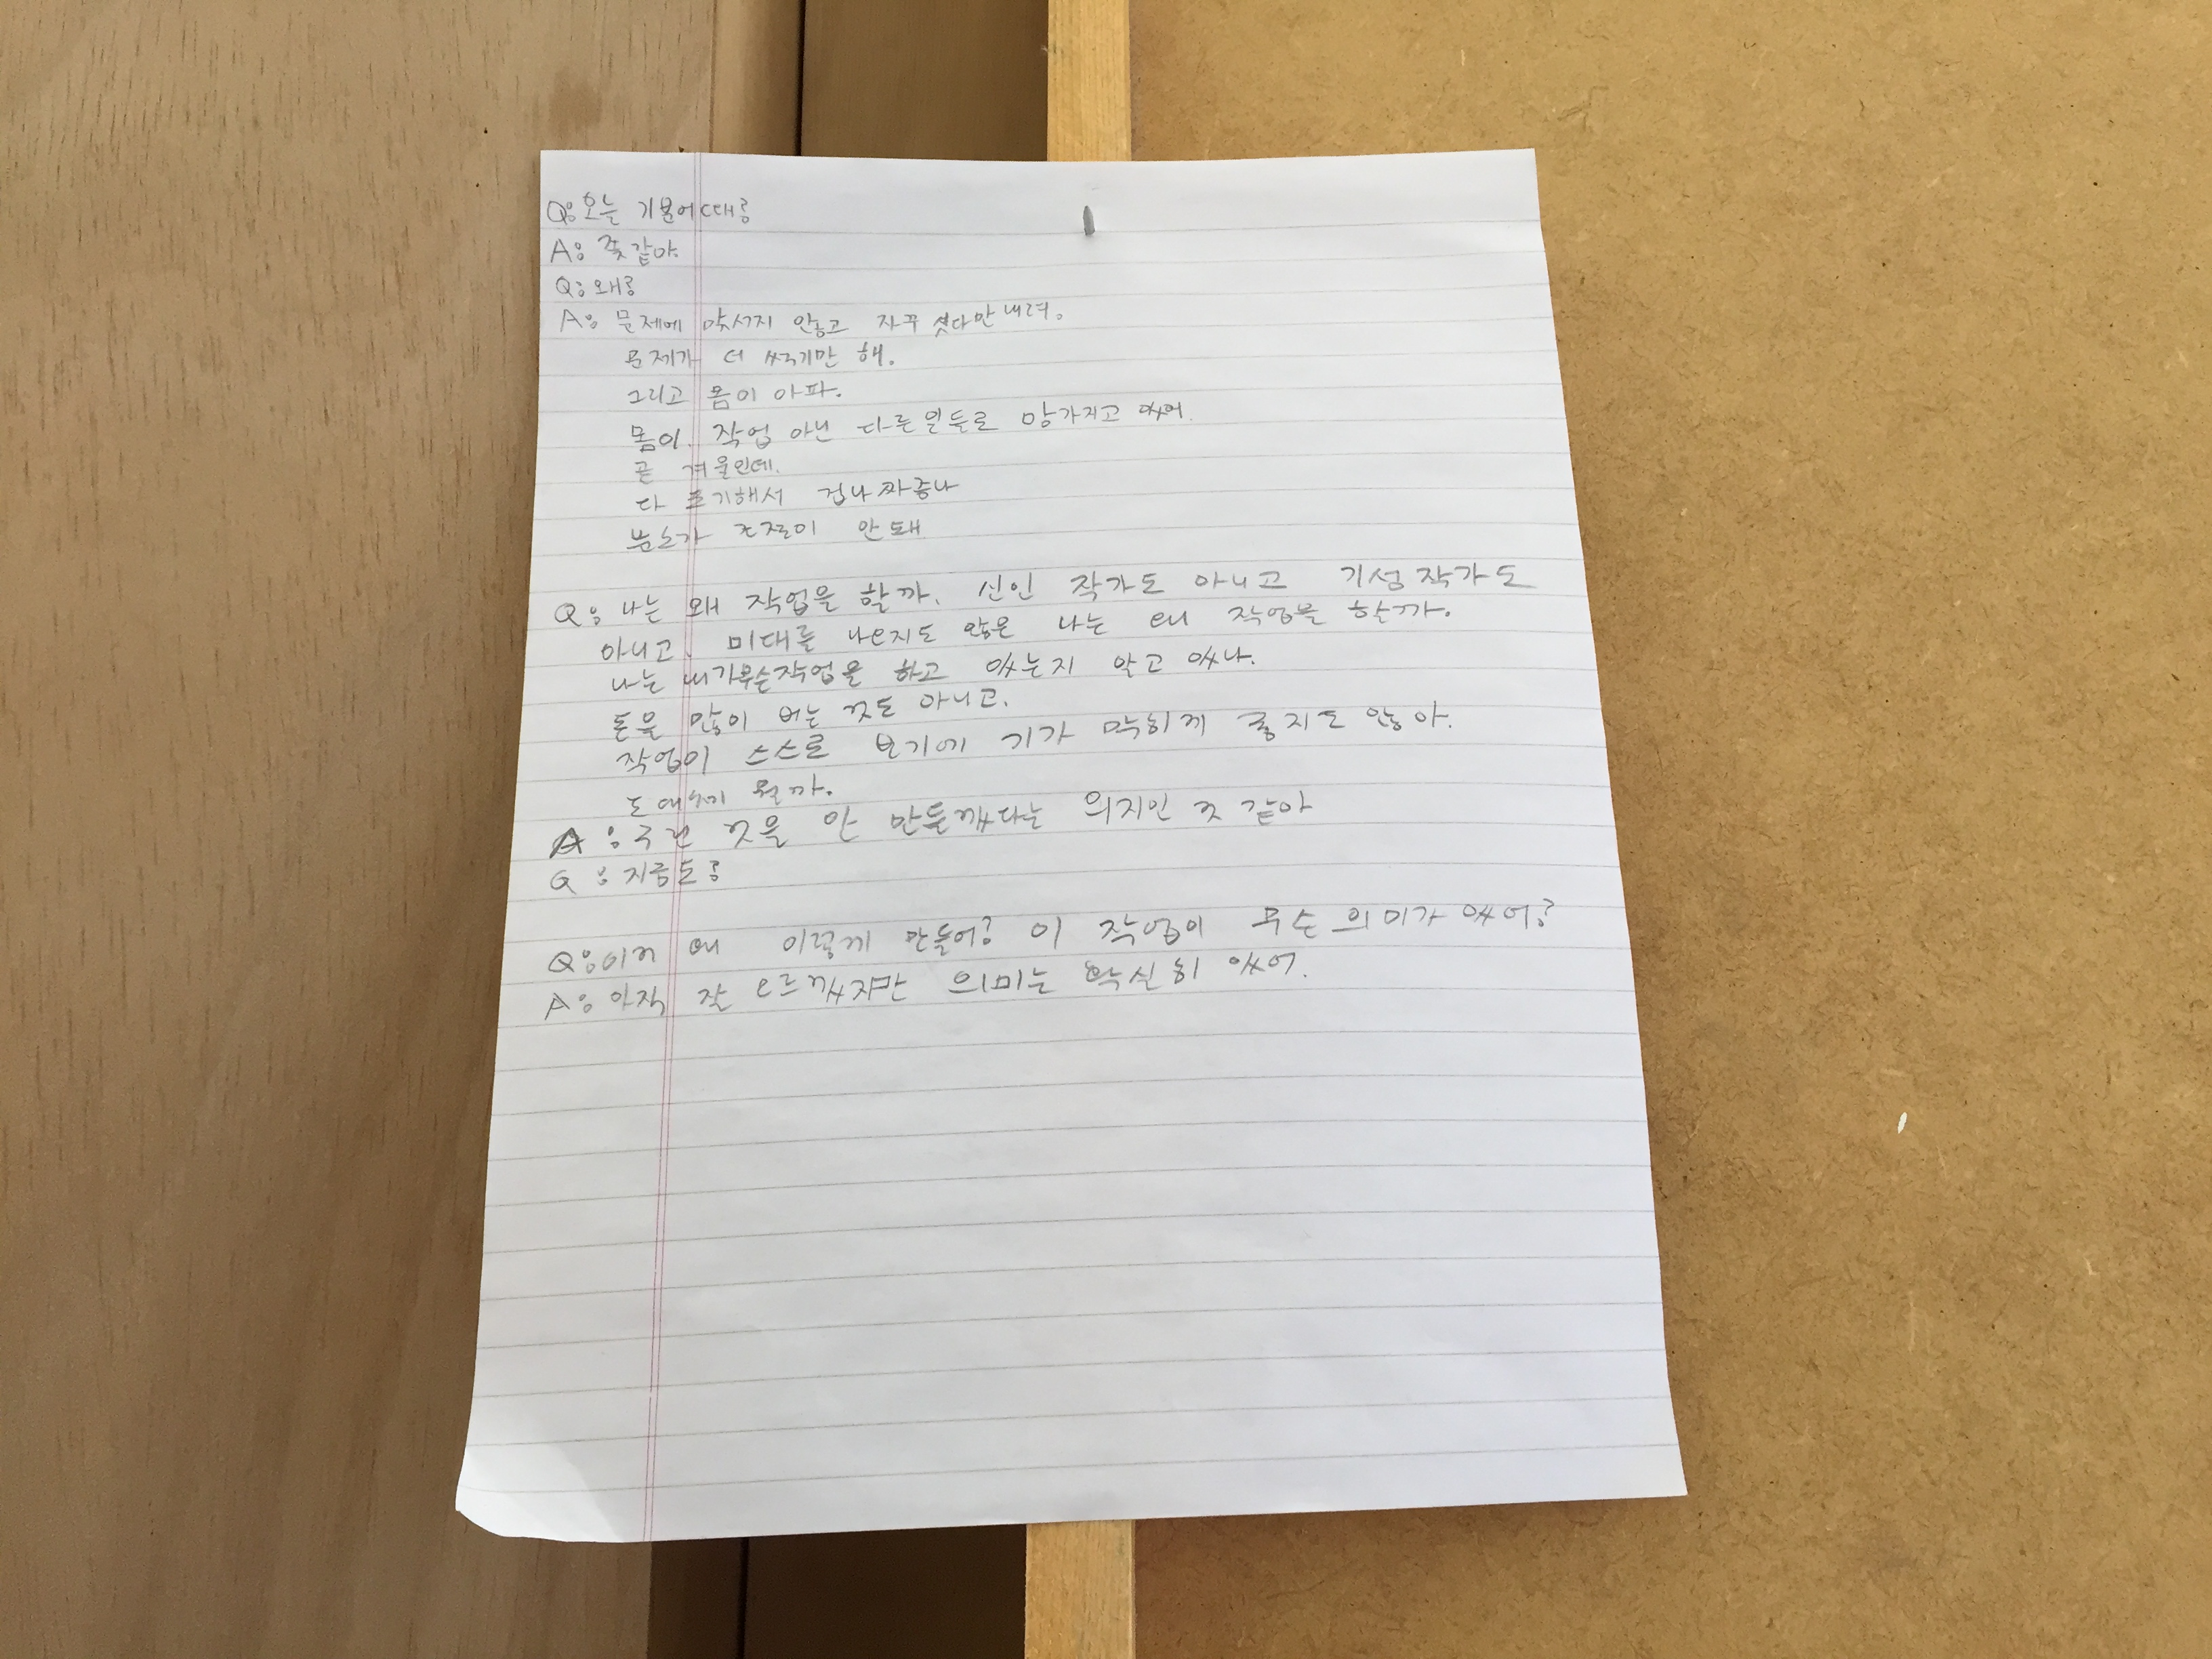 Q: 오늘 기분어때?
A: 좆같아.
Q: 왜?
A: 문제에 맞서지 않고 자꾸 셧다만내려.
문제가 더 썩기만 해.
그리고 몸이 아파.
몸이. 작업 아닌 다른일들로 망가지고 있어.
곧 겨울인데.
다 포기해서 겁나짜증나
분노가 조절이 안돼
Q: 나는 왜 작업을 할까. 신인 작가도 아니고 기성작가도
아니고. 미대를 나오지도 않은 나는 왜 작업을 할까.
나는 내가무슨작업을 하고 있는지 알고 있나.
돈을 많이 버는 것도 아니고.
작업이 스스로 보기에 기가 막히게 좋지도 않아.
도대체 뭘까.
A: 구린 것을 안 만들겠다는 의지인 것 같아
Q: 지금도?
Q: 이거 왜 이렇게 만들어? 이 작업이 무슨 의미가 있어?
A: 아직 잘 모르겠지만 의미는 확실히 있어.